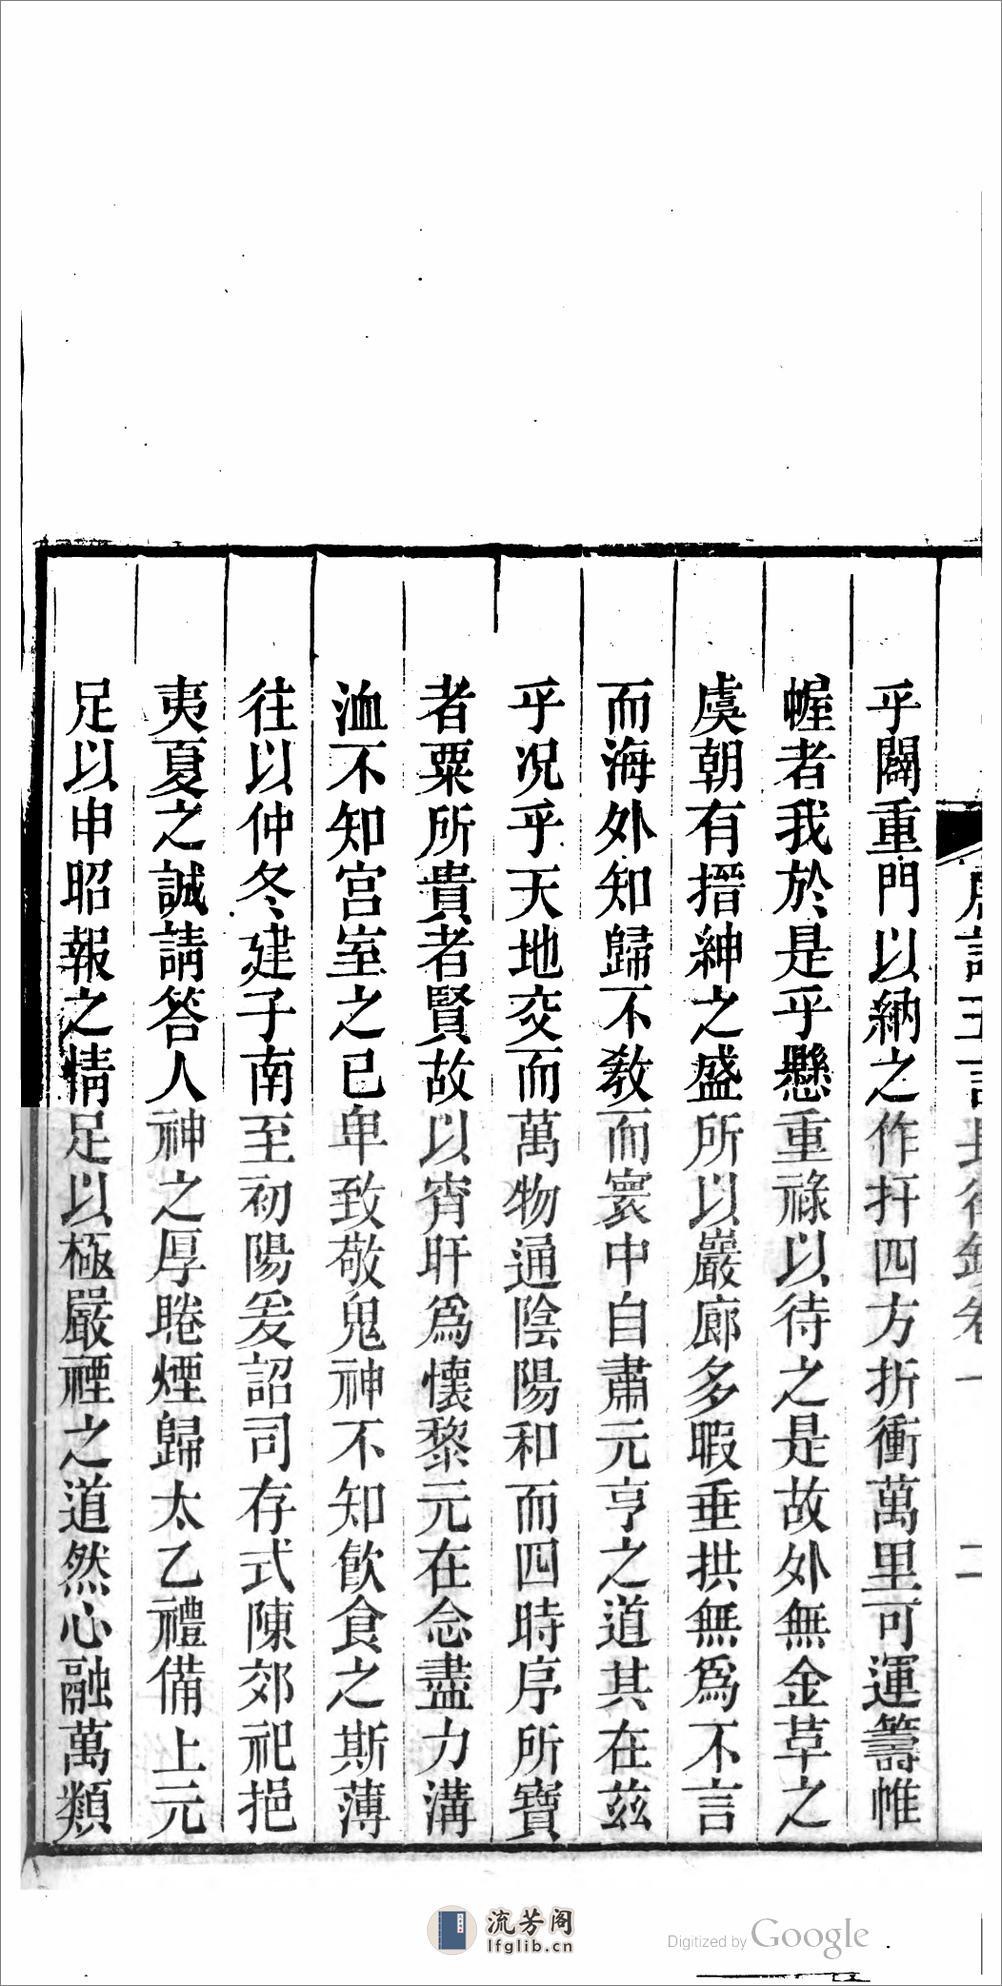 乎闢重門以納之作扞四方折衝萬里可運籌帷
幄者我於是乎懸重祿以待之是故外無金草之
虞朝有搢紳之盛所以巖廊多暇垂拱無爲不言
而海外知歸不教而寰中自肅元亨之道其在茲
乎况乎天地交而萬物通陰陽和而四時序所寶
者粟所貴者賢故以宵旰爲懷黎元在念盡力溝
洫不知宫室之已卑致敬鬼神不知飲食之斯薄
往以仲冬建子南至初陽爰詔司存式陳郊祀挹
夷夏之誠請答人神之厚睠煙歸太乙禮備上元
足以申昭報之情足以極嚴禋之道然心融萬類
二
流芳阁
lfglib.cn
Digitized by Google